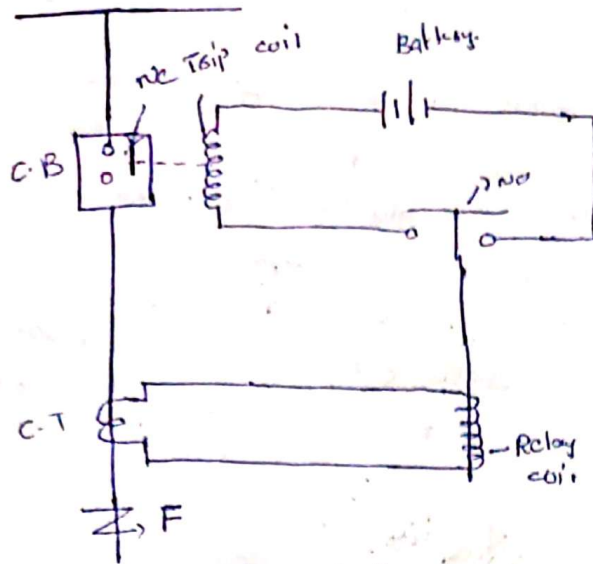 NC Trip coil
Battery.
C.B
NO
C.T
Relay
coil.
F